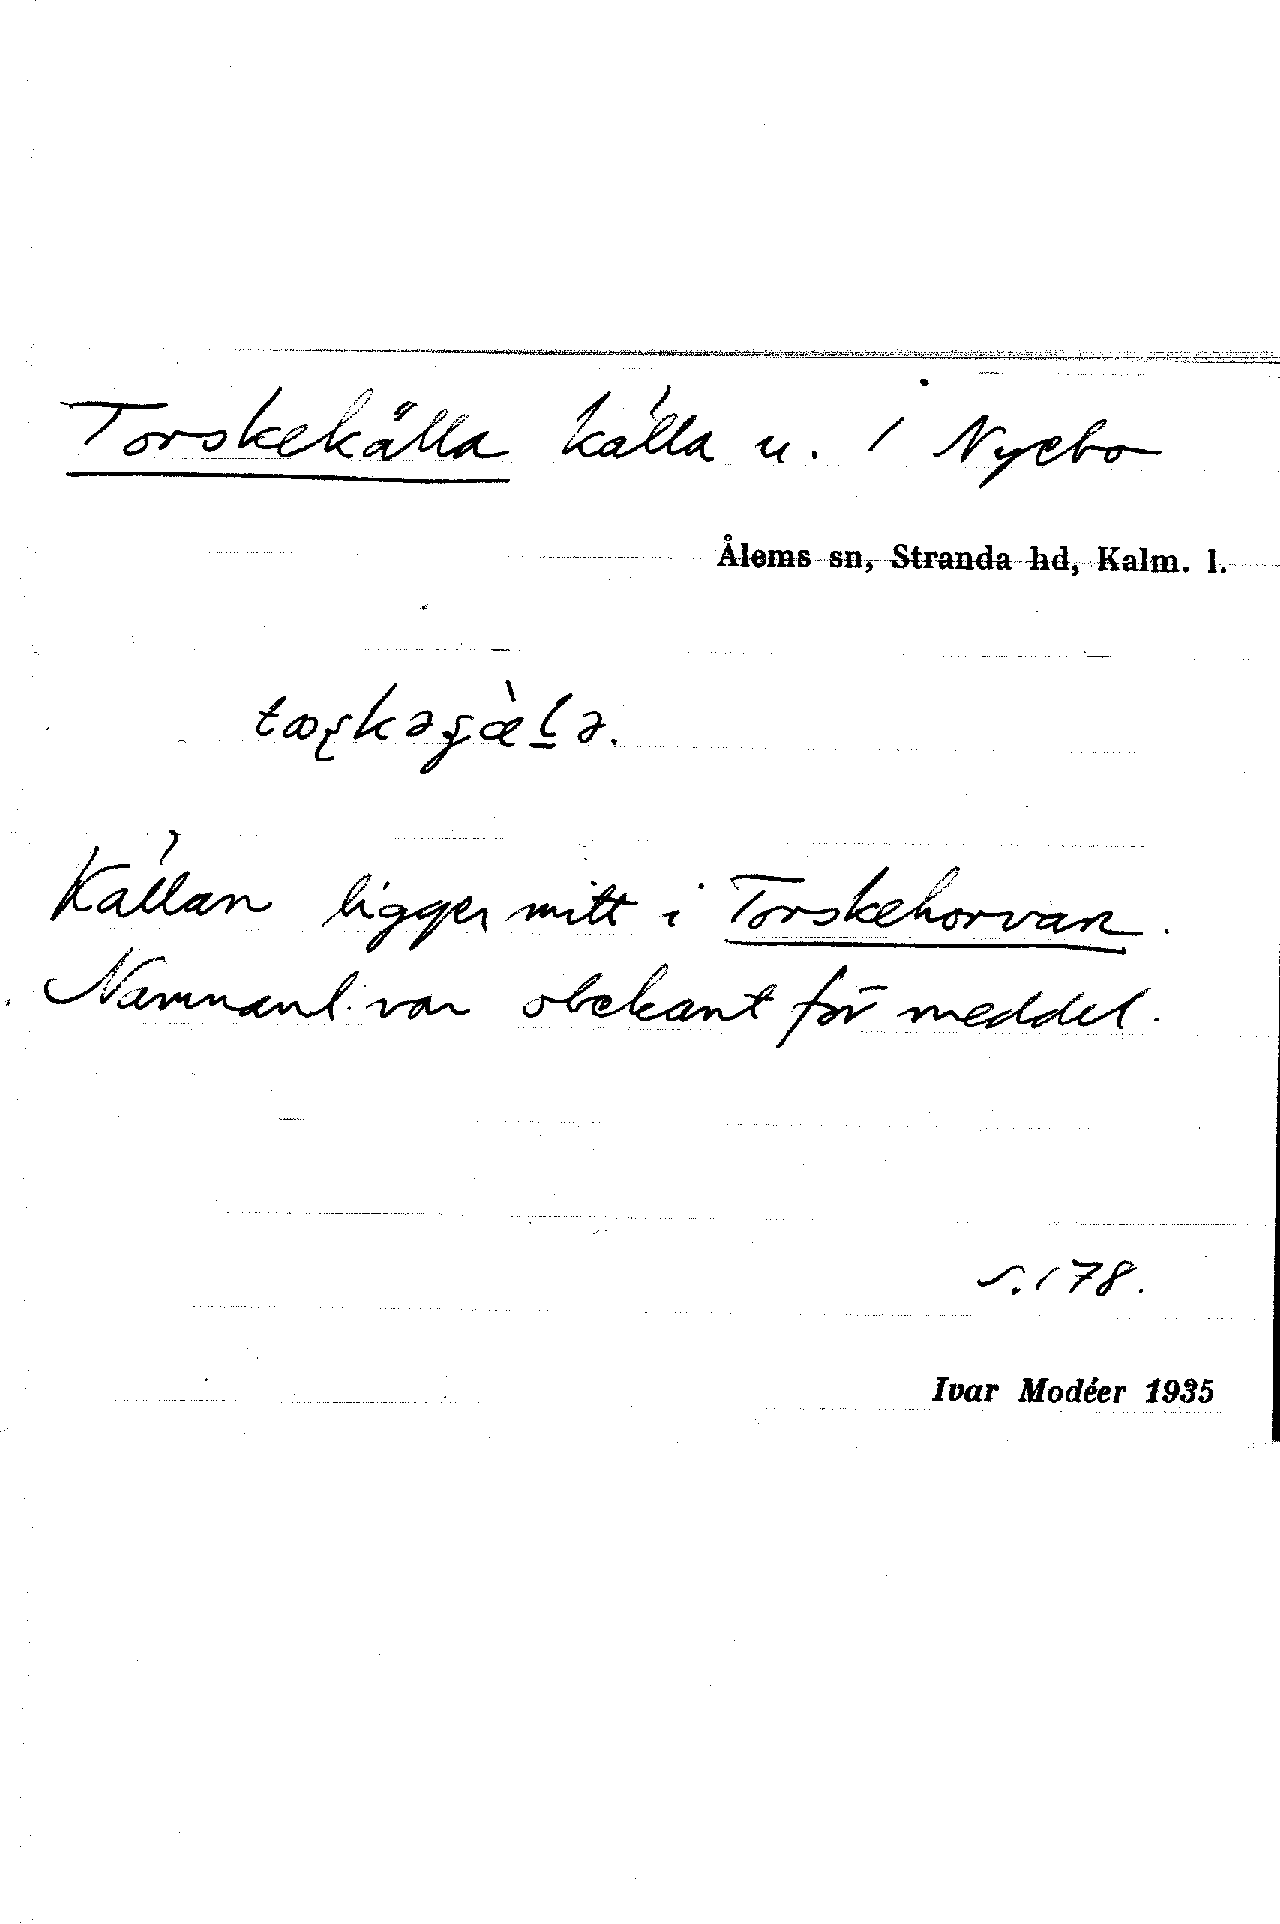 Torskekälla källa u. 1 Nyebo
Ålems sn, Stranda hd, Kalm. l.
Källan ligger mitt i Torskehorvan.
Namnanl. var obekant för meddel.
s. 178.
Ivar Modéer 1935